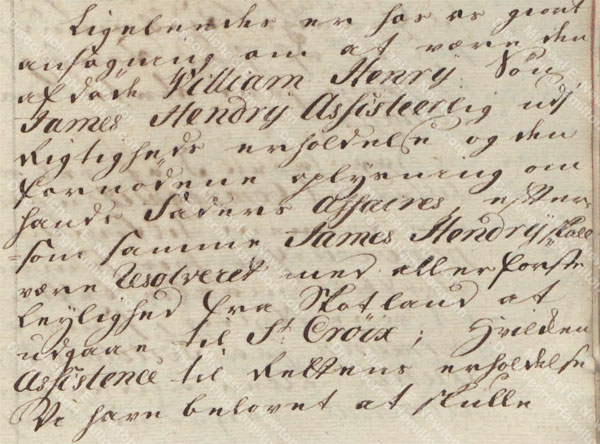 Ligeleedes er hos os giort
ansøgning om at være den
afdøde William Henry Søn
James Hendry Assisteerlig udj
Rigtigheds erholdelse og den
fornødene oplysning om
hands Faders affaires, efter-
=som samme James Hendry skall
være resolveret med allerførste
Leylighed fra Skotland at
udgaae til St. Croix; Hvilcken
Assistence til Rettens erholdelse
Vi have belovet at skulle